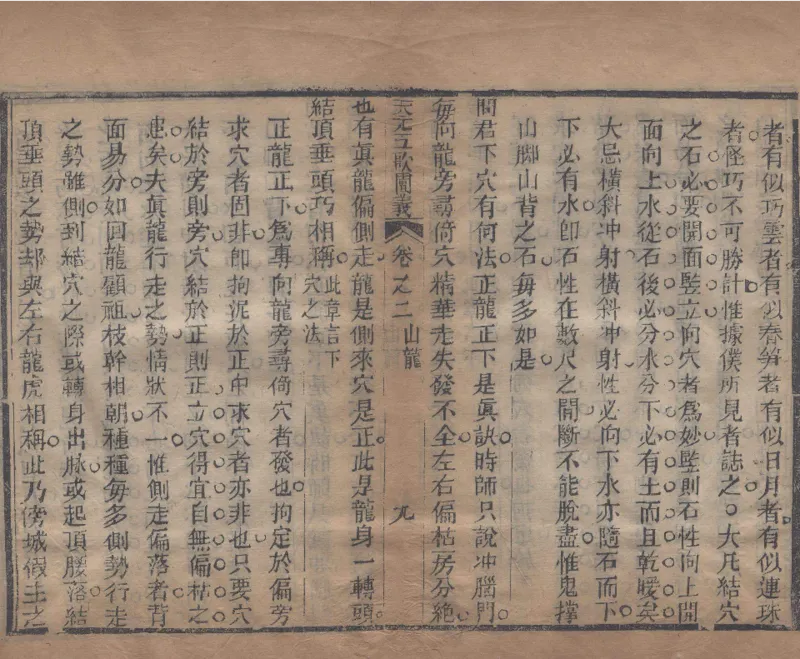 者有似巧雲者有似春筍者有似日月者有似連珠
者怪巧不可勝計惟據僕所見者誌之。大凡結穴
之石必要開面竪立向穴者爲妙竪則石性向上開
面向上水從石後必分水分下必有土而且乾暖矣
大忌橫斜冲射橫斜冲射性必向下水亦隨石而下
下必有水卽石性在數尺之開斷不能脫盡惟鬼撑
山脚山背之石每多如是
問君下穴有何法正龍正下是眞訣時師只說冲腦門
每向龍旁尋倚穴精華走失發不全左右偏枯房分絶
天元五歌圖義 卷之二 山龍 九
也有眞龍偏側走龍是側來穴是正此是龍身一轉頭
結頂垂頭巧相稱此章言下穴之法
正龍正下爲專向龍旁尋倚穴者發也拘定於偏旁
求穴者固非卽拘泥於正中求穴者亦非也只要穴
結於旁則旁穴結於正則正立穴得宜自無偏枯之
患矣夫眞龍行走之勢情狀不一惟側走偏落者背
面易分如回龍顧祖枝幹相朝種種每多側勢行走
之勢雖側到結穴之際或轉身出脉或起頂腰落結
頂垂頭之勢却與左右龍虎相稱此乃傍城假主之